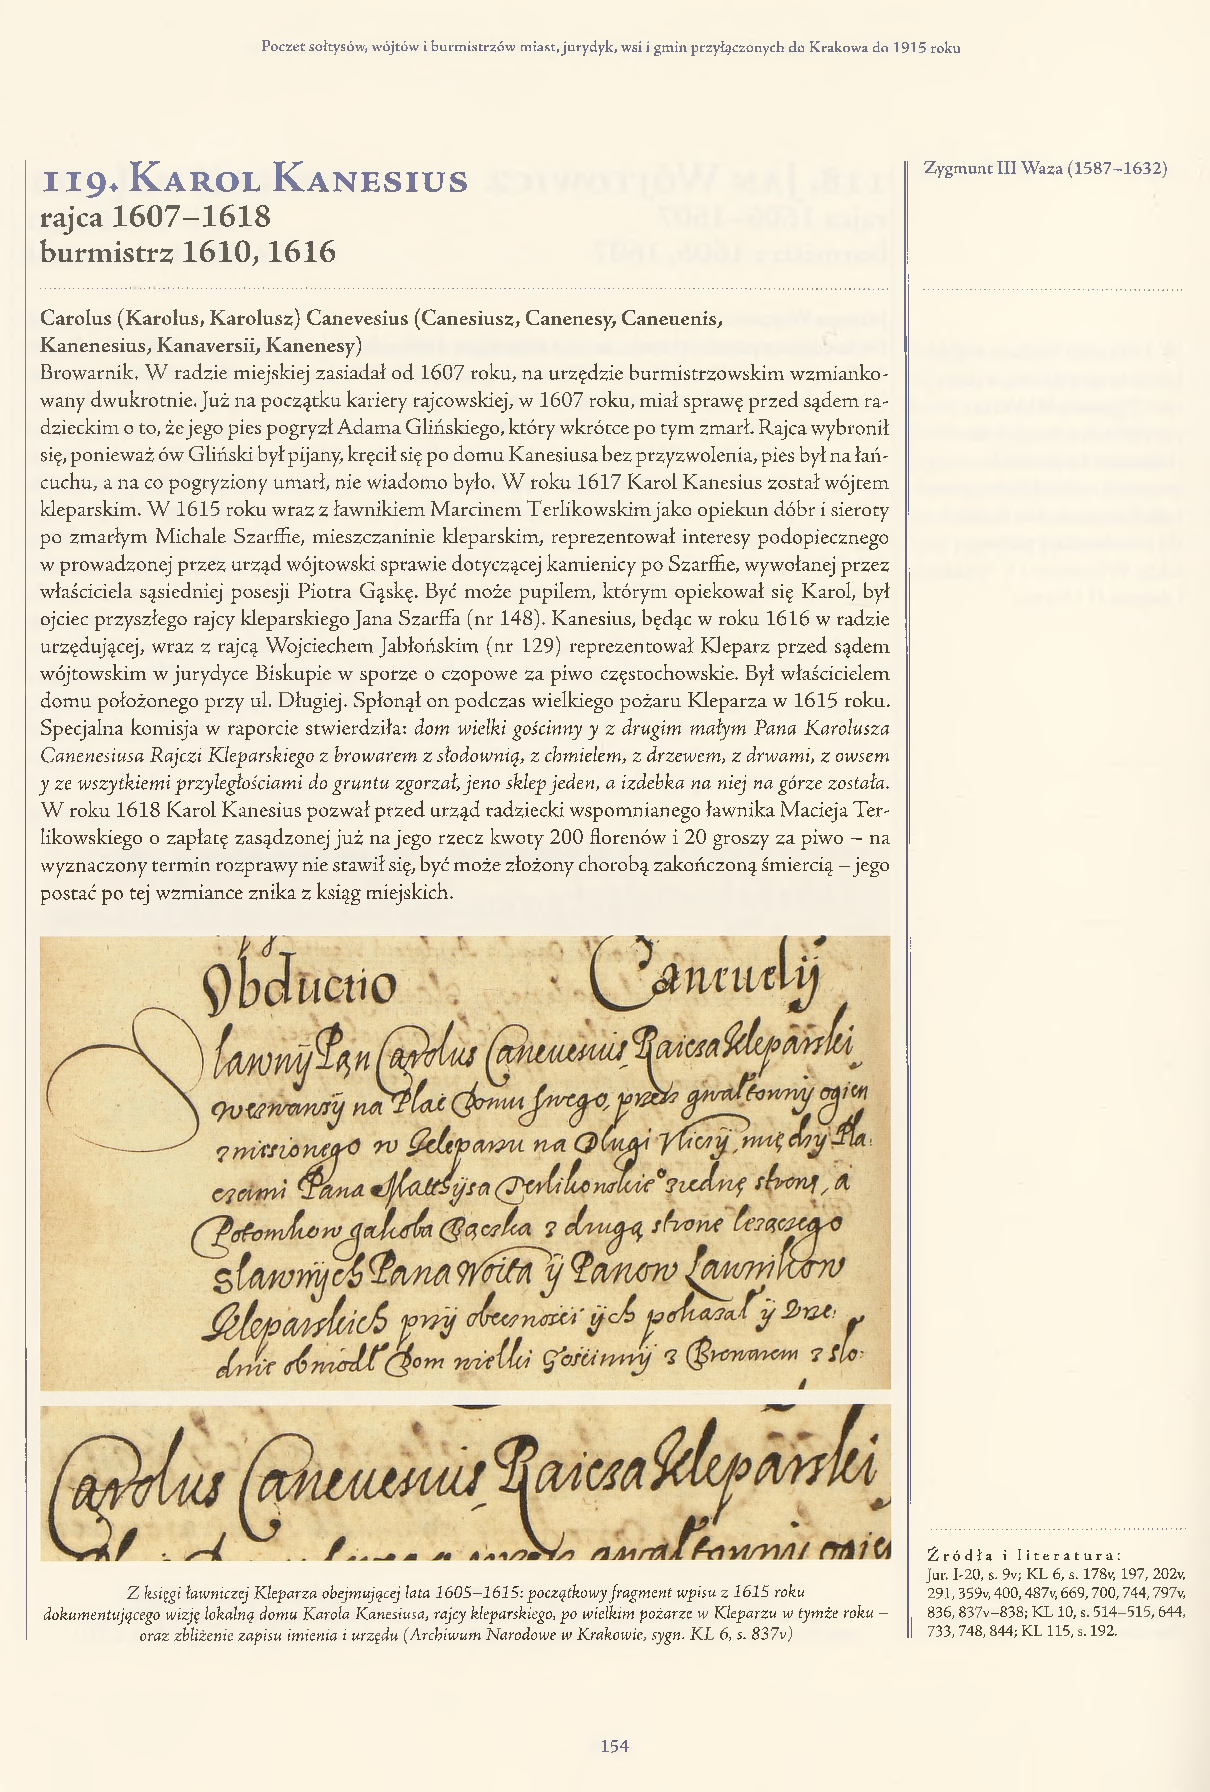 Poczet sołtysów, wójtów i burmistrzów miast, jurydyk, wsi i gmin przyłączonych do Krakowa do 1915 roku
119. Karol Kanesius
rajca 1607–1618
burmistrz 1610, 1616
Zygmunt III Waza (1587–1632)
Carolus (Karolus, Karolusz) Canevesius (Canesiusz, Canenesy, Caneuenis,
Kanenesius, Kanaversii, Kanenesy)
Browarnik. W radzie miejskiej zasiadał od 1607 roku, na urzędzie burmistrzowskim wzmianko-
wany dwukrotnie. Już na początku kariery rajcowskiej, w 1607 roku, miał sprawę przed sądem ra-
dzieckim o to, że jego pies pogryzł Adama Glińskiego, który wkrótce po tym zmarł. Rajca wybronił
się, ponieważ ów Gliński był pijany, kręcił się po domu Kanesiusa bez przyzwolenia, pies był na łań-
cuchu, a na co pogryziony umarł, nie wiadomo było. W roku 1617 Karol Kanesius został wójtem
kleparskim. W 1615 roku wraz z ławnikiem Marcinem Terlikowskim jako opiekun dóbr i sieroty
po zmarłym Michale Szarffie, mieszczaninie kleparskim, reprezentował interesy podopiecznego
w prowadzonej przez urząd wójtowski sprawie dotyczącej kamienicy po Szarffie, wywołanej przez
właściciela sąsiedniej posesji Piotra Gąskę. Być może pupilem, którym opiekował się Karol, był
ojciec przyszłego rajcy kleparskiego Jana Szarffa (nr 148). Kanesius, będąc w roku 1616 w radzie
urzędującej, wraz z rajcą Wojciechem Jabłońskim (nr 129) reprezentował Kleparz przed sądem
wójtowskim w jurydyce Biskupie w sporze o czopowe za piwo częstochowskie. Był właścicielem
domu położonego przy ul. Długiej. Spłonął on podczas wielkiego pożaru Kleparza w 1615 roku.
Specjalna komisja w raporcie stwierdziła: dom wielki gościnny y z drugim małym Pana Karolusza
Canenesiusa Rajczi Kleparskiego z browarem z słodownią, z chmielem, z drzewem, z drwami, z owsem
y ze wszytkiemi przyległościami do gruntu zgorzał, jeno sklep jeden, a izdebka na niej na górze została.
W roku 1618 Karol Kanesius pozwał przed urząd radziecki wspomnianego ławnika Macieja Ter-
likowskiego o zapłatę zasądzonej już na jego rzecz kwoty 200 florenów i 20 groszy za piwo – na
wyznaczony termin rozprawy nie stawił się, być może złożony chorobą zakończoną śmiercią – jego
postać po tej wzmiance znika z ksiąg miejskich.
Obductio Caneuesij
Slawny Pan Carolus Caneuesius Raicza Kleparski
wezwawszy na Plac Domu swego, przez gwałtowny ogien
zniesionego w Kleparzu na Długi Vliczy, między Pla-
czami Pana Matthysa Terlikowskie° z iednę stronę, a
Potomkow Jakoba Bączka z drugą strone lezączego
Sławnych Pana Woita y Panow Ławnikow
Kleparskich przy obecznosci ych pokazał y Vrze-
dnie obwiodł Dom wielki Gościnny z Browarem z sło-
Carolus Caneuesius Raicza Kleparski
Z księgi ławniczej Kleparza obejmującej lata 1605–1615: początkowy fragment wpisu z 1615 roku
dokumentującego wizję lokalną domu Karola Kanesiusa, rajcy kleparskiego, po wielkim pożarze w Kleparzu w tymże roku –
oraz zbliżenie zapisu imienia i urzędu (Archiwum Narodowe w Krakowie, sygn. KL 6, s. 837v)
Źródła i literatura:
Jur. I-20, s. 9v; KL 6, s. 178v, 197, 202v,
291, 359v, 400, 487v, 669, 700, 744, 797v,
836, 837v–838; KL 10, s. 514–515, 644,
733, 748, 844; KL 115, s. 192.
154